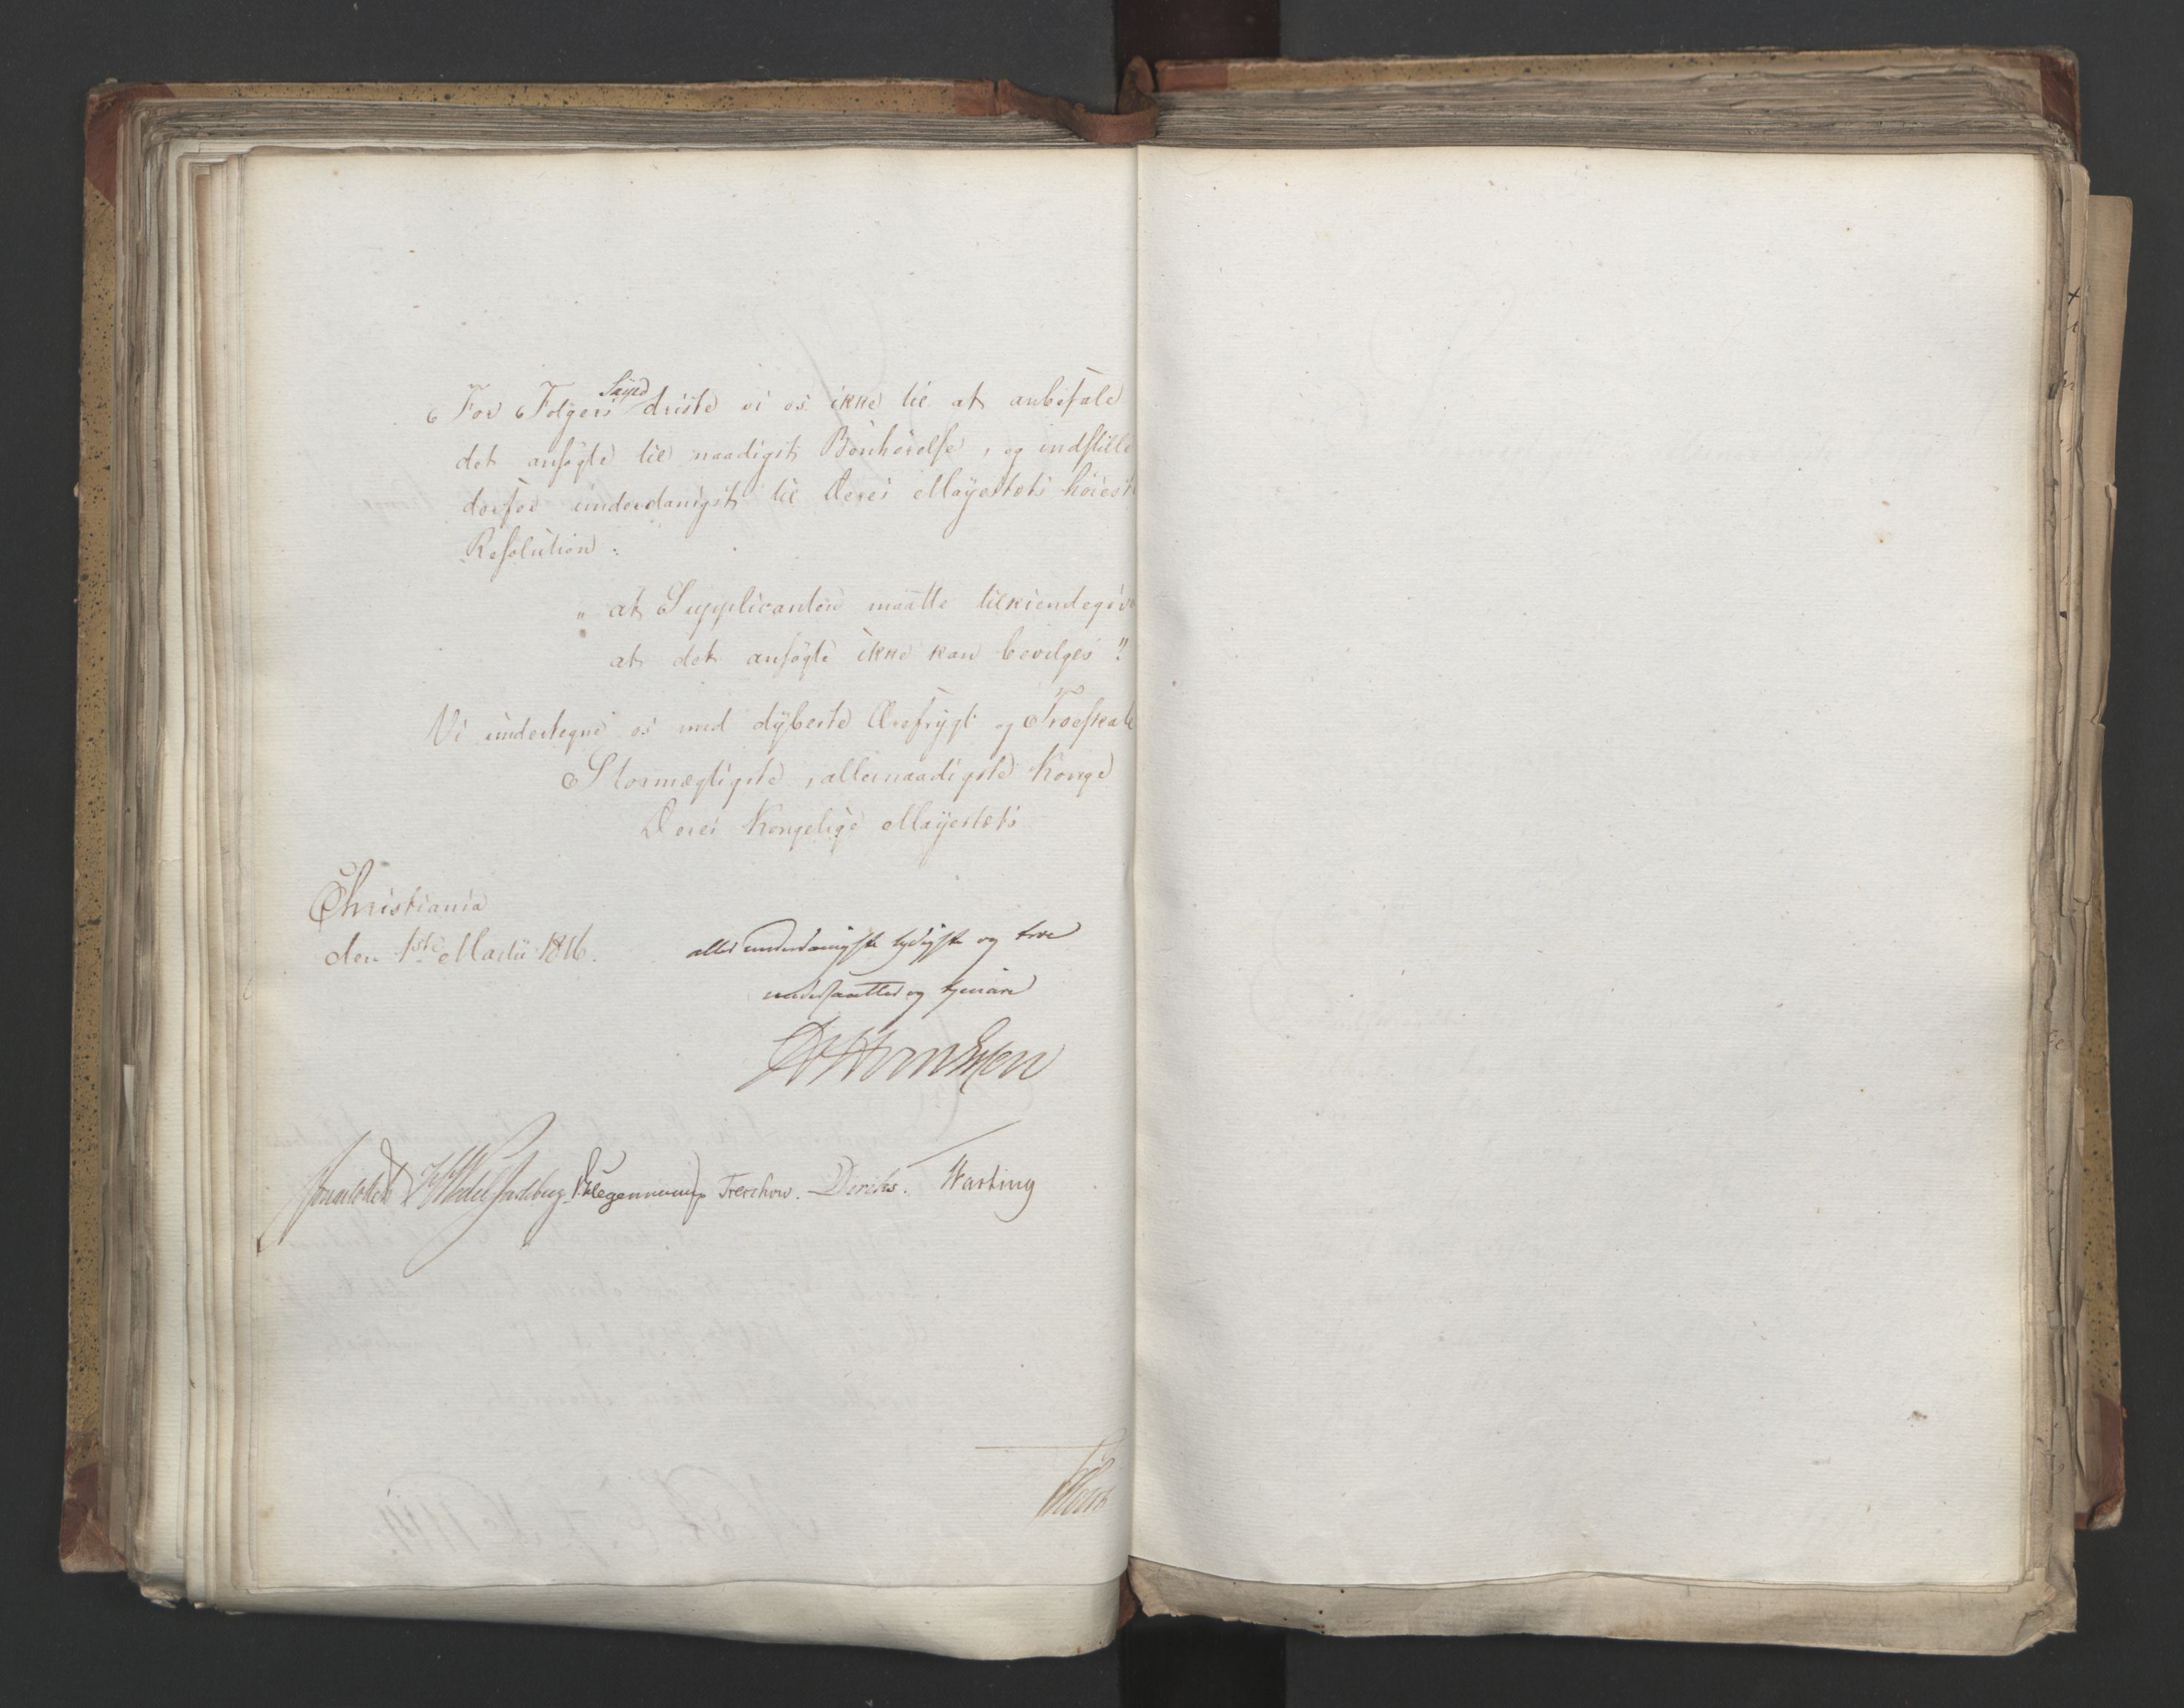 For Følgers Skyld driste vi os ikke til at anbefale
det ansøgte til naadigst Bønhørelse, og indstille
derfor underdanigst til Deres Mayestets høieste
Resolution:
"at Supplicanten maatte tilkiendegive
at det ansøgte ikke kan bevilges".
Vi undertegne os med dybeste Ærefrygt og Troeskab
Stormægtigste, allernaadigste Konge
Deres Kongelige Mayestets
Christiania
den 1ste Martii 1816.
allerunderdanigste lydigste og troe
undersaatter og tjenare
Wedel Jarlsberg P. Hegermann Treschow. Diriks.